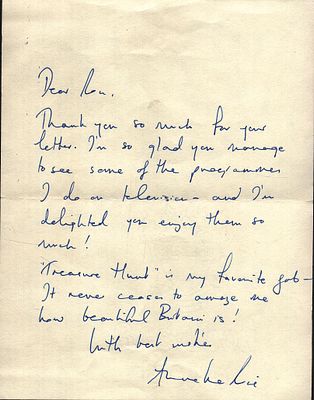 Dear Ron,
Thank you so much for your
letter. I'm so glad you manage
to see some of the programmes
I do on television – and I'm
delighted you enjoy them so
much!
"Treasure Hunt" is my favourite job –
It never ceases to amaze me
how beautiful Britain is!
With best wishes
Anneka Rice